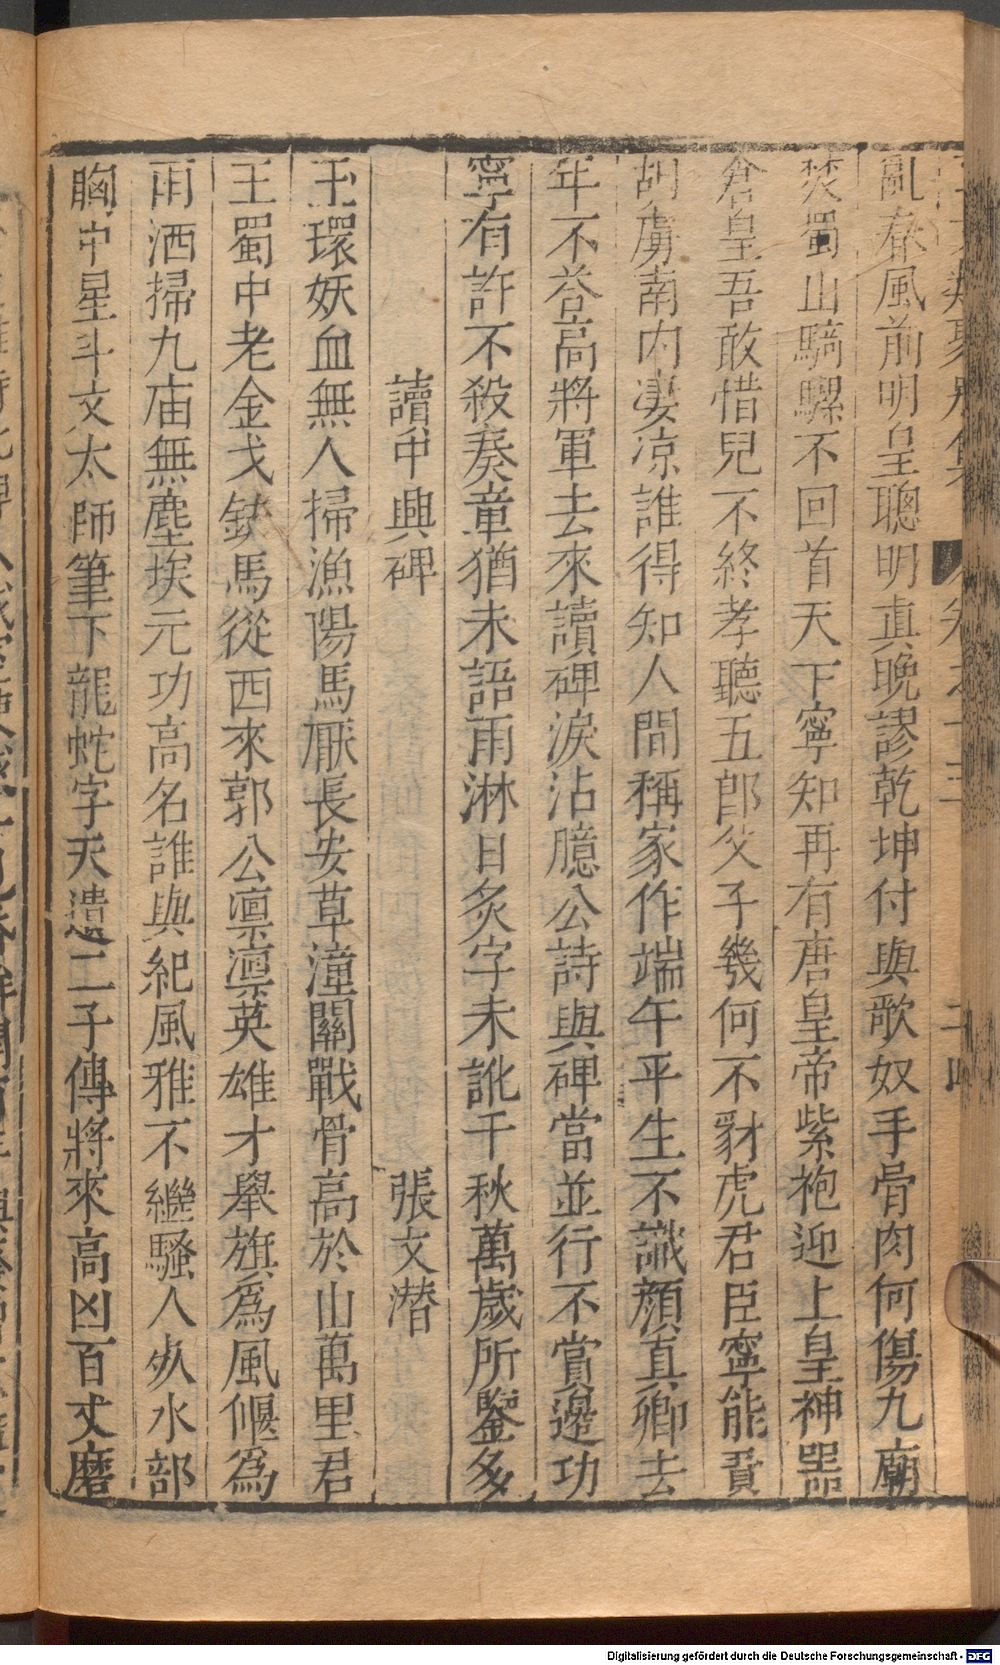 亂春風前明皇聰明真晚謬乾坤付與歌奴手骨肉何傷九廟
焚蜀山騎騾不回首天下寧知再有唐皇帝紫袍迎上皇神器
倉皇吾敢惜兒不終孝聽五郎父子幾何不豺虎君臣寧能責
胡虜南內凄凉誰得知人間稱家作端午平生不識顏真卿去
年不荅高將軍去來讀碑淚沾臆公詩與碑當並行不賞邊功
寧有許不殺奏章猶未語雨淋日炙字未訛千秋萬歲所鑒多
讀中興碑 張文潛
玉環妖血無人掃漁陽馬厭長安草潼關戰骨高於山萬里君
王蜀中老金戈鉄馬從西來郭公凛凛英雄才舉旗爲風偃爲
雨洒掃九庙無塵埃元功高名誰與紀風雅不繼騷人死水部
胸中星斗文太師筆下龍蛇字天遣二子傳將來高凶百丈磨
Digitalisierung gefördert durch die Deutsche Forschungsgemeinschaft - DFG